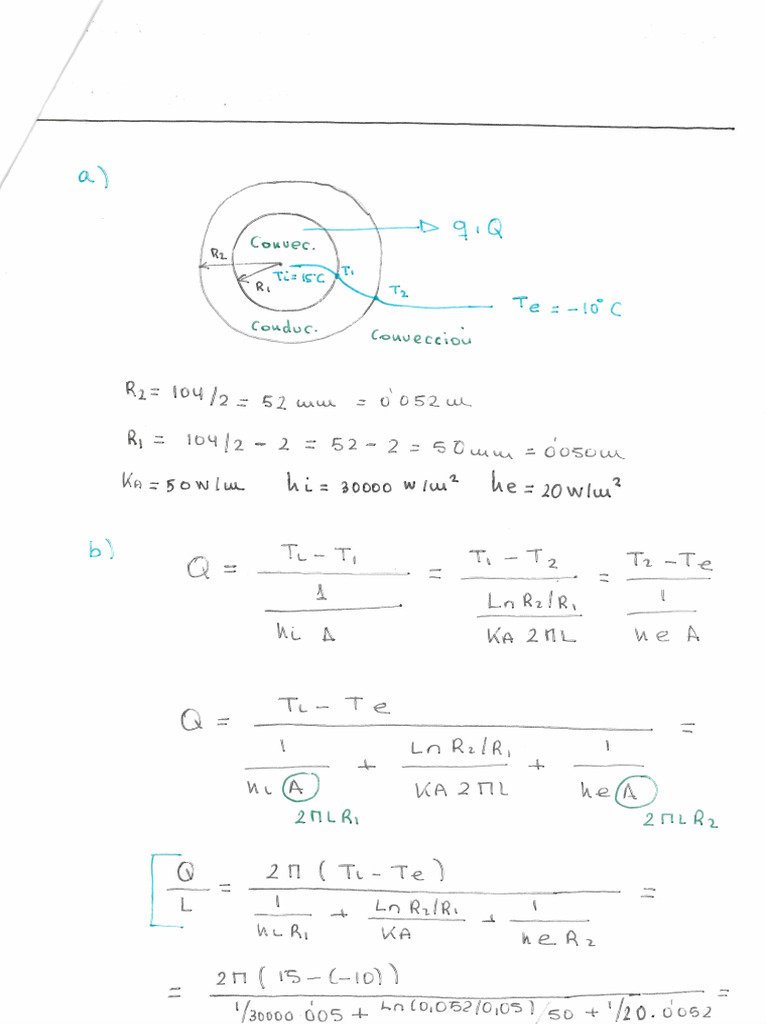 a)
Convec.
q, Q
R2
Ti = 15°C
T1
R1
T2
Te = -10°C
Conduc.
Convección
R2 = 104/2 = 52 mm = 0'052 m
R1 = 104/2 - 2 = 52 - 2 = 50 mm = 0'050 m
KA = 50 W/m   hi = 30000 W/m²   he = 20 W/m²
b)
Q = (Ti - T1) / (1 / (hi A)) = (T1 - T2) / ((Ln R2/R1) / (KA 2πL)) = (T2 - Te) / (1 / (he A))
Q = (Ti - Te) / (1 / (hi A) + (Ln R2/R1) / (KA 2πL) + 1 / (he A)) =
2πLR1
2πLR2
Q/L = 2π (Ti - Te) / (1 / (hi R1) + (Ln R2/R1) / KA + 1 / (he R2)) =
= 2π (15 - (-10)) / (1/30000·0'05 + Ln(0,052/0,05)/50 + 1/20·0'052 =